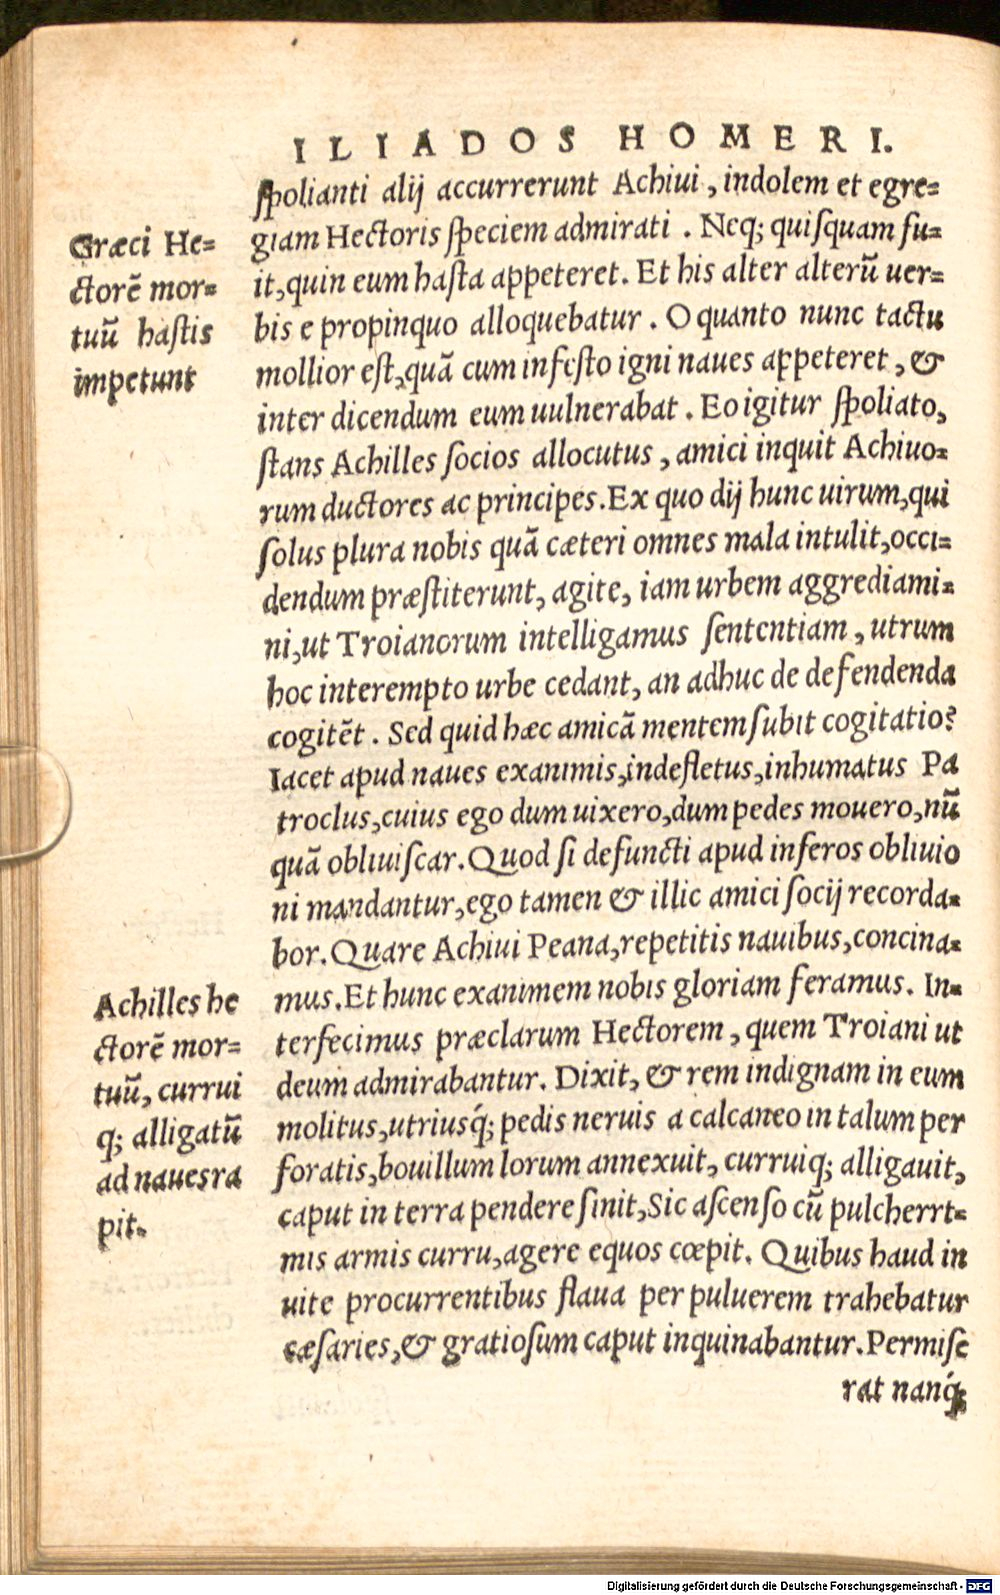 ILIADOS HOMERI.
ſpolianti alij accurrerunt Achiui, indolem et egre=
giam Hectoris ſpeciem admirati. Neq; quiſquam fu=
it, quin eum haſta appeteret. Et his alter alterũ uer=
bis e propinquo alloquebatur. O quanto nunc tactu
mollior eſt, quã cum infeſto igni naues appeteret, &
inter dicendum eum uulnerabat. Eo igitur ſpoliato,
ſtans Achilles ſocios allocutus, amici inquit Achiuo=
rum ductores ac principes. Ex quo dij hunc uirum, qui
ſolus plura nobis quã cæteri omnes mala intulit, occi=
dendum præſtiterunt, agite, iam urbem aggrediami=
ni, ut Troianorum intelligamus ſententiam, utrum
hoc interempto urbe cedant, an adhuc de defendenda
cogitẽt. Sed quid hæc amicã mentem ſubit cogitatio?
Iacet apud naues exanimis, indefletus, inhumatus Pa
troclus, cuius ego dum uixero, dum pedes mouero, nũ
quã obliuiſcar. Quod ſi defuncti apud inferos obliuio
ni mandantur, ego tamen & illic amici ſocij recorda=
bor. Quare Achiui Peana, repetitis nauibus, concina=
mus. Et hunc exanimem nobis gloriam feramus. In=
terfecimus præclarum Hectorem, quem Troiani ut
deum admirabantur. Dixit, & rem indignam in eum
molitus, utriusq́; pedis neruis a calcaneo in talum per
foratis, bouillum lorum annexuit, curruiq; alligauit,
caput in terra pendere ſinit, Sic aſcenſo cũ pulcherrt=
mis armis curru, agere equos cœpit. Quibus haud in
uite procurrentibus flaua per puluerem trahebatur
cæſaries, & gratioſum caput inquinabantur. Permiſe
rat nanq́;
Græci He=
ctorẽ mor=
tuũ haſtis
impetunt
Achilles he
ctorẽ mor=
tuũ, currui
q; alligatũ
ad nauesra
pit.
Digitalisierung gefördert durch die Deutsche Forschungsgemeinschaft - DFG